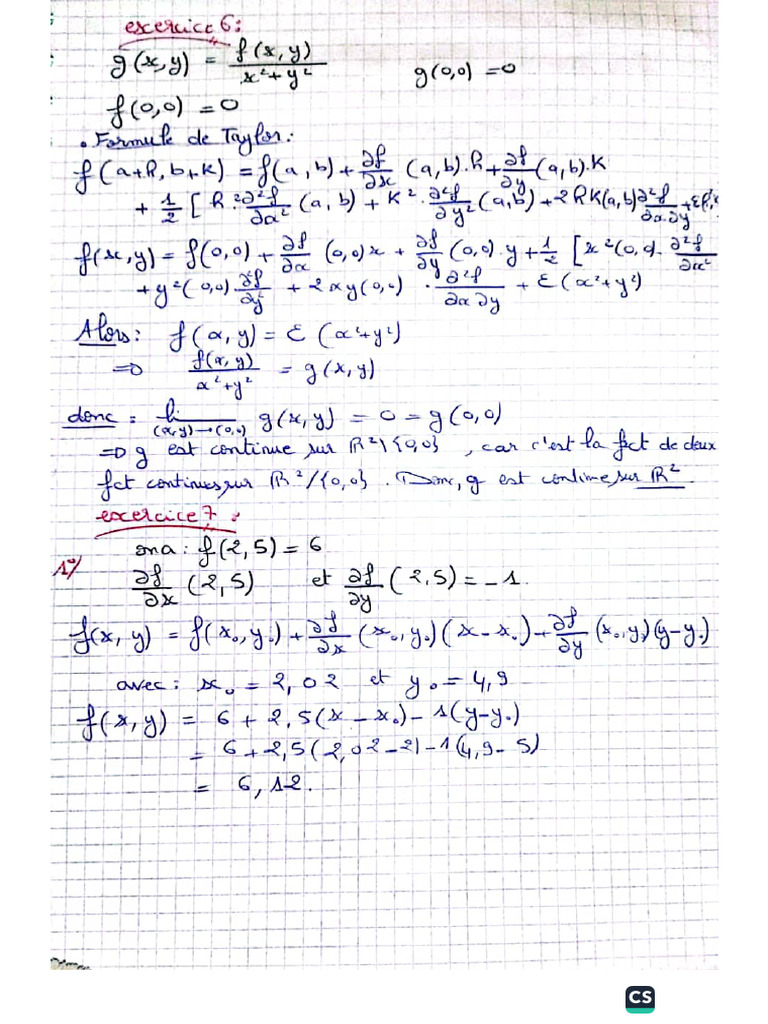 exercice 6:
g(x,y) = f(x,y)/(x²+y²)    g(0,0) = 0
f(0,0) = 0
• Formule de Taylor:
f(a+h, b+k) = f(a,b) + ∂f/∂x (a,b).h + ∂f/∂y (a,b).k
+ 1/2 [ h².∂²f/∂x² (a,b) + k². ∂²f/∂y² (a,b) + 2hk(a,b) ∂²f/∂x.∂y +
f(x,y) = f(0,0) + ∂f/∂x (0,0)x + ∂f/∂y (0,0).y + 1/2 [x²(0,0). ∂²f/∂x²
+ y²(0,0).∂²f/∂y² + 2xy(0,0) . ∂²f/∂x∂y + ε(x²+y²)
Alors: f(x,y) = ε(x²+y²)
=> f(x,y)/(x²+y²) = g(x,y)
donc: lim (x,y)→(0,0) g(x,y) = 0 = g(0,0)
=> g est continue sur ℝ²\{0,0}, car c'est la fct de deux
fct continues sur ℝ²/{0,0}. Donc, g est continue sur ℝ²
exercice 7:
1°/ ona: f(2,5) = 6
∂f/∂x (2,5) et ∂f/∂y (2,5) = -1.
f(x,y) = f(x₀,y₀) + ∂f/∂x (x₀,y₀)(x-x₀) + ∂f/∂y (x₀,y₀)(y-y₀)
avec: x₀ = 2,02 et y₀ = 4,9
f(x,y) = 6 + 2,5(x-x₀) - 1(y-y₀)
= 6 + 2,5(2,02-2) - 1(4,9-5)
= 6,12.
CS